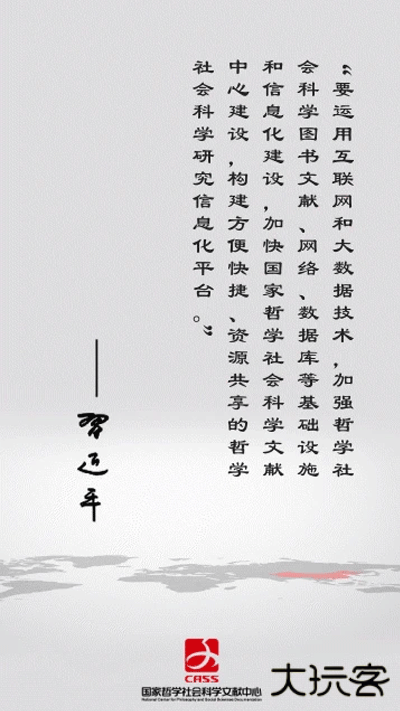 “要运用互联网和大数据技术，加强哲学社
会科学图书文献、网络、数据库等基础设施
和信息化建设，加快国家哲学社会科学文献
中心建设，构建方便快捷、资源共享的哲学
社会科学研究信息化平台。”
——習近平
CASS
国家哲学社会科学文献中心
National Center for Philosophy and Social Sciences Documentation
大玩客